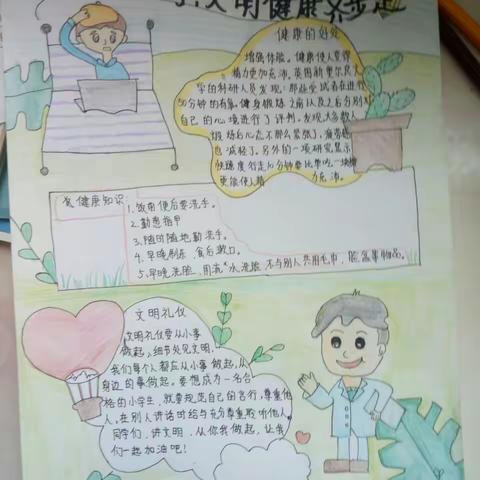 文明健康
健康的好处
增强体质。健康使人变得
精力更加充沛。英国勒里尔氏大
学的科研人员发现，那些受试者在进行
30分钟的有氧健身锻炼之前以及之后分别对
自己的心境进行了评判。发现大多数人
锻炼后心态不那么紧张了，疲劳感
也减轻了。另外的一项研究显示
快速度行走10分钟要比单吃一块糖
更能使人精力充沛。
健康知识：
1.饭前便后要洗手。
2.勤剪指甲
3.随时随地勤洗手。
4.早晚刷牙，食后漱口。
5.早晚洗脸，用流水洗脸，不与别人共用毛巾，脸盆等物品。
文明礼仪
文明礼仪要从小事
做起，细节处见文明，
我们每个人都应从小事做起，从
身边的事做起。要想成为一名合
格的小学生，就要规范自己的言行，尊重他
人，在别人讲话时给与充分尊重聆听他人。
同学们，讲文明，从你我做起，让我
们一起加油吧！